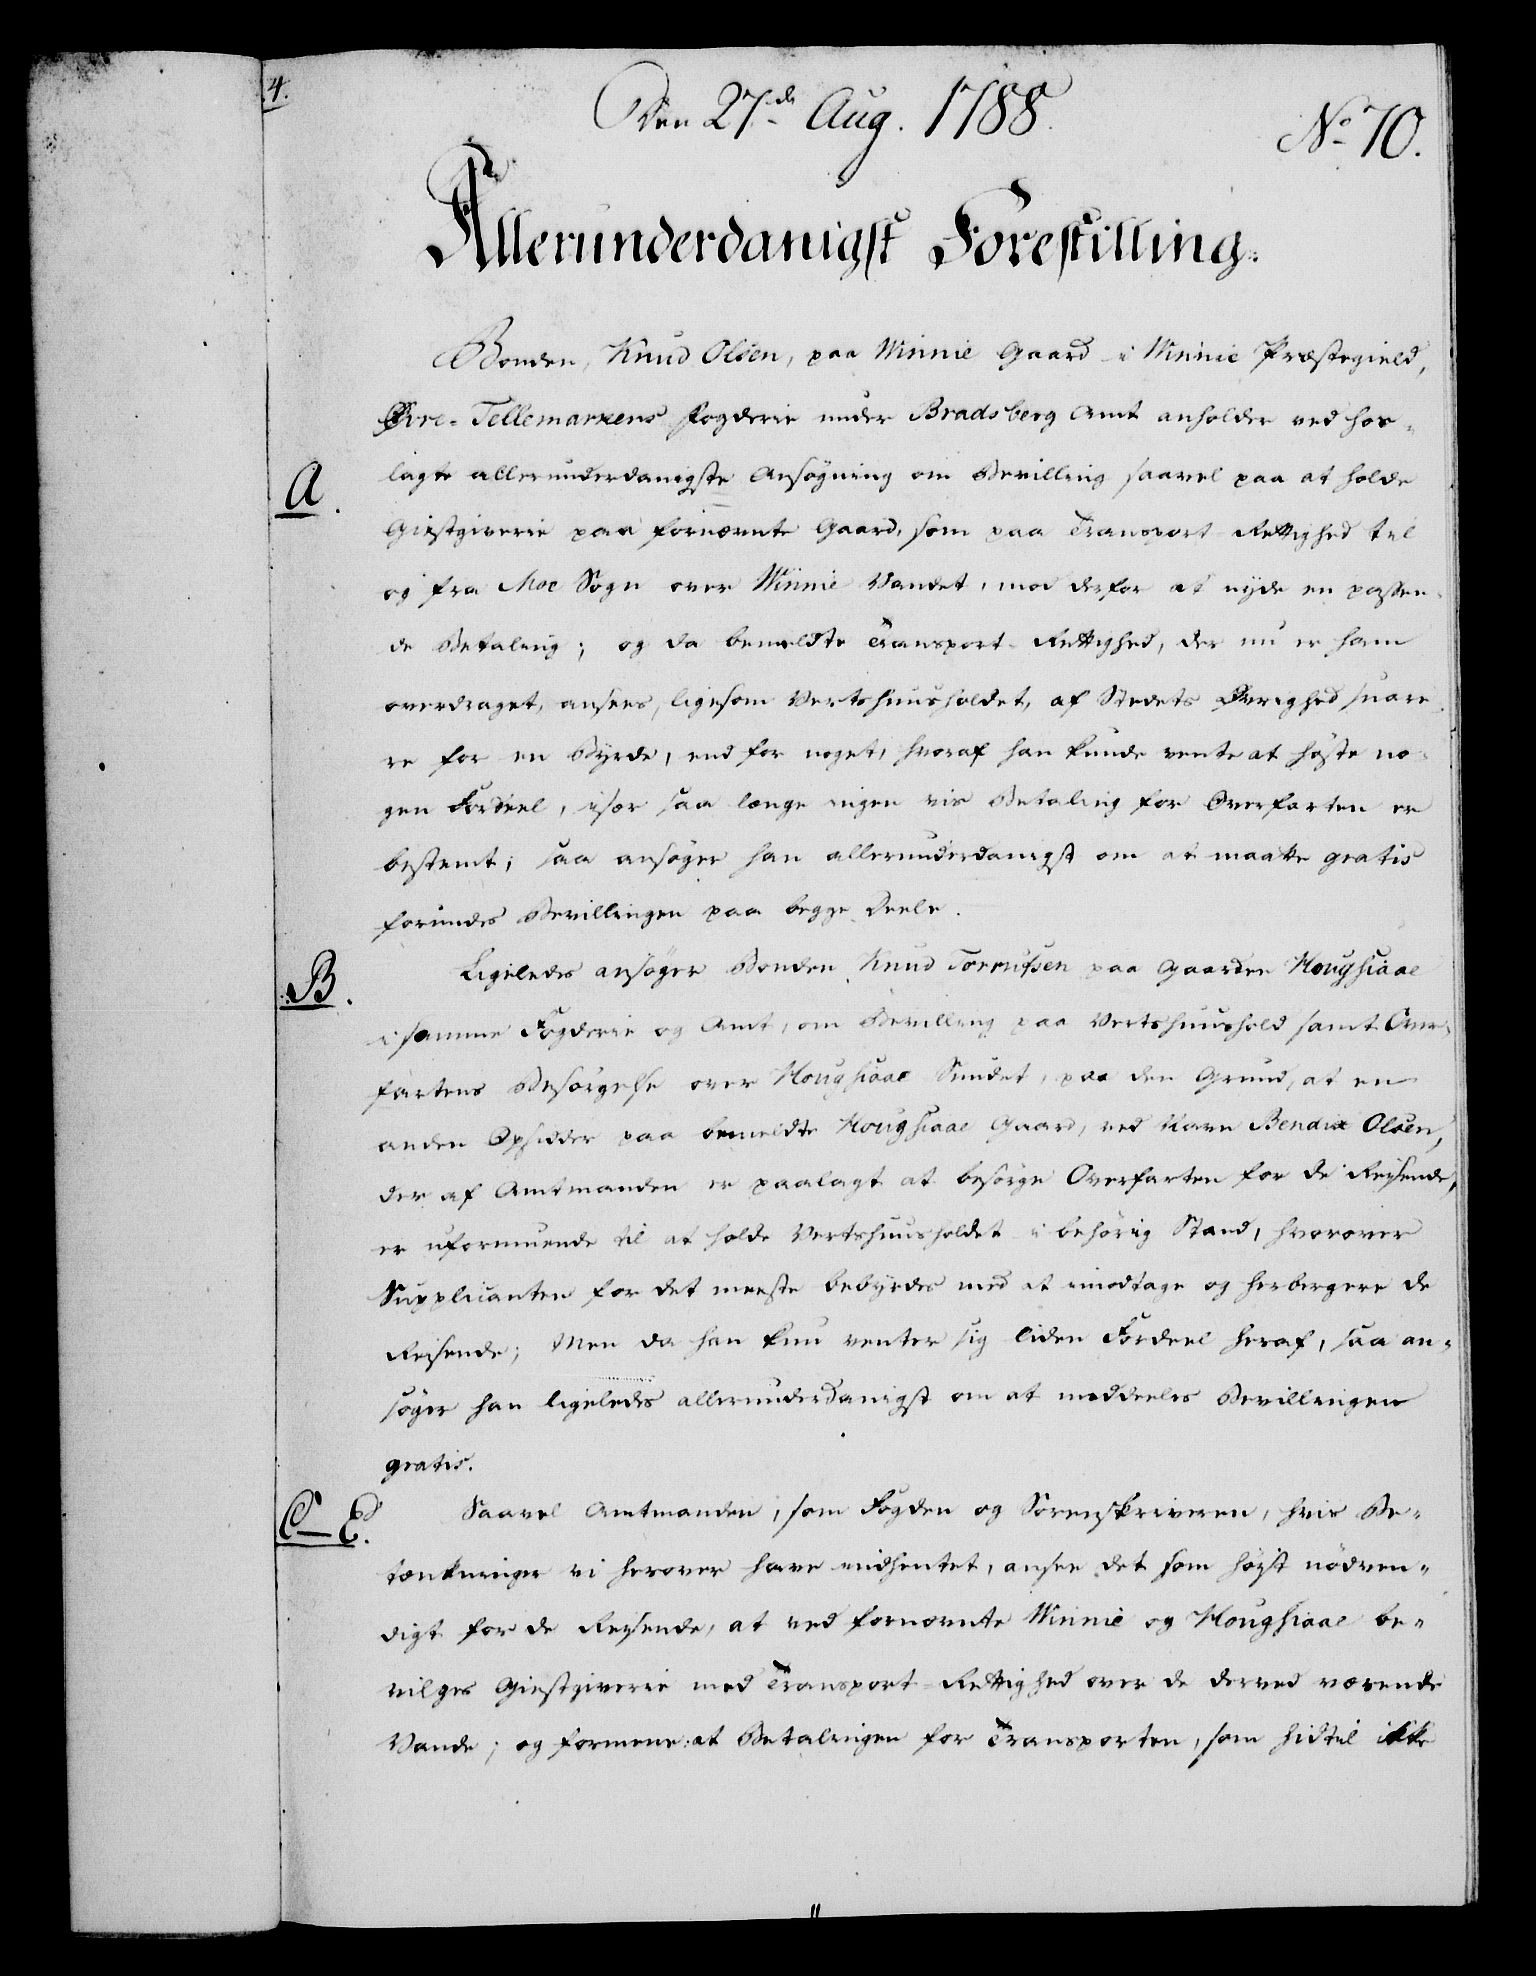 4.
Den 27de Aug. 1788.
No 70.
Allerunderdanigst Forestilling.
Bonden, Knud Olsen, paa Winnie Gaard i Winnie Præstegield,
Øvre-Tellemarkens Fogderie under Bradsberg Amt anholder ved hos-
A.
lagte allerunderdanigste Ansøgning om Bevilling saavel paa at holde
Giestgiverie paa fornævnte Gaard, som paa Transport-Rettighed til
og fra Moe Sogn over Winnie Vandet, mod derfor at nyde en passen-
de Betaling; og da bemeldte Transport-Rettighed, der nu er ham
overdraget, ansees, ligesom Vertshuusholdet, af Stedets Øvrighed snare-
re for en Byrde, end for noget, hvoraf han kunde vente at høste no-
gen Fordeel, især saa længe ingen vis Betaling for Overfarten er
bestemt; saa ansøger han allerunderdanigst om at maatte gratis
forundes Bevillingen paa begge Deele.
B.
Ligeledes ansøger Bonden Knud Torrufsen paa Gaarden Hougsiaae
i samme Fogderie og Amt, om Bevilling paa Vertshuushold samt Over-
fartens Besørgelse over Hougsiaae Sundet, paa den Grund, at en
anden Opsidder paa bemeldte Hougsiaae Gaard, ved Navn Bendix Olsen,
der af Amtmanden er paalagt at besørge Overfarten for de Reysende,
er uformuende til at holde Vertshuusholdet i behørig Stand, hvorover
Supplicanten for det meeste bebyrdes med at imodtage og herbergere de
Reisende; Men da han kun venter sig liden Fordeel heraf, saa an-
søger han ligeledes allerunderdanigst om at meddeeles Bevillingen
gratis.
C-E.
Saavel Amtmanden, som Fogden og Sorenskriveren, hvis Be-
tænkninger vi herover have indhentet, ansee det som høyst nødven-
digt for de Reysende, at ved fornævnte Winnie og Hougsiaae be-
vilges Giestgiverie med Transport-Rettighed over de derved værende
Vande; og formene: at Betalingen for Transporten, som hidtil ikke